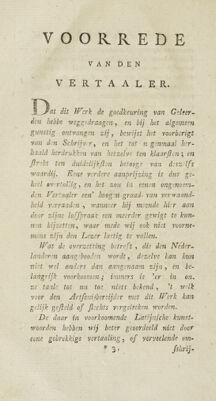 VOORREDE
VAN DEN
VERTAALER.
Dat dit Werk de goedkeuring van Geleer-
den hebbe weggedraagen, en bij het algemeen
gunstig ontvangen zij, bewijst het voorberigt
van den Schrijver, en het tot 'er maal her-
haald herdrukken van hetzelve ten klaarsten; en
strekt ten duidelijksten betooge van deszelfs
waardij. Eene verdere aanprijzing is dus ge-
heel overtollig, en het zou in eenen ongenoem-
den Vertaaler een' hoogen graad van verwaand-
heid verraaden, wanneer hij meende hier aan
door zijne lofspraak een meerder gewigt te kun-
nen bijzetten, waar mede wij ook niet voorne-
mens zijn den Lezer lastig te vallen.
Wat de overzetting betreft, die den Neder-
landeren aangeboden wordt, dezelve kan hun
niet wel anders dan aangenaam zijn, en be-
langrijk voorkoomen; immers is 'er in on-
ze taale tot nu toe niets bekend, 't welk
voor den Artsenijbereider met dit Werk kan
gelijk gesteld of slechts vergeleeken worden.
De daar in voorkomende Latijnsche kunst-
woorden hebben wij beter geoordeeld niet door
eene gebrekkige vertaaling, of vervelende om-
* 3
schrij-